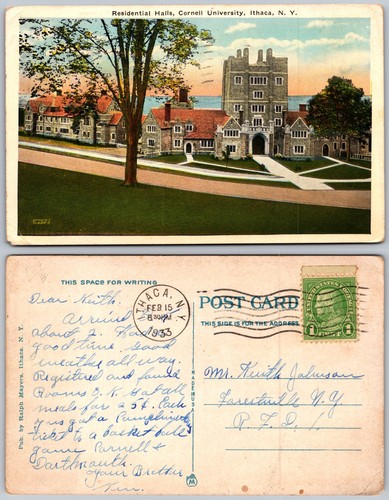 Residential Halls, Cornell University, Ithaca, N. Y.
THIS SPACE FOR WRITING
Dear Keith.
Arrived
about 2. Had a
good time. Good
weather all way.
Registered and found
Rooms O.K. Got all
meals for a $. Each
one got a Complimentary
ticket to a basket ball
game Cornell &
Dartmouth.
Your Brother
Pub. by Ralph Mayers, Ithaca, N. Y.
ITHACA, N.Y.
FEB 15
1933
POST CARD
THIS SIDE IS FOR THE ADDRESS
1 1
Mr. Keith Johnson
Forestville N.Y.
R.F.D. 1
M